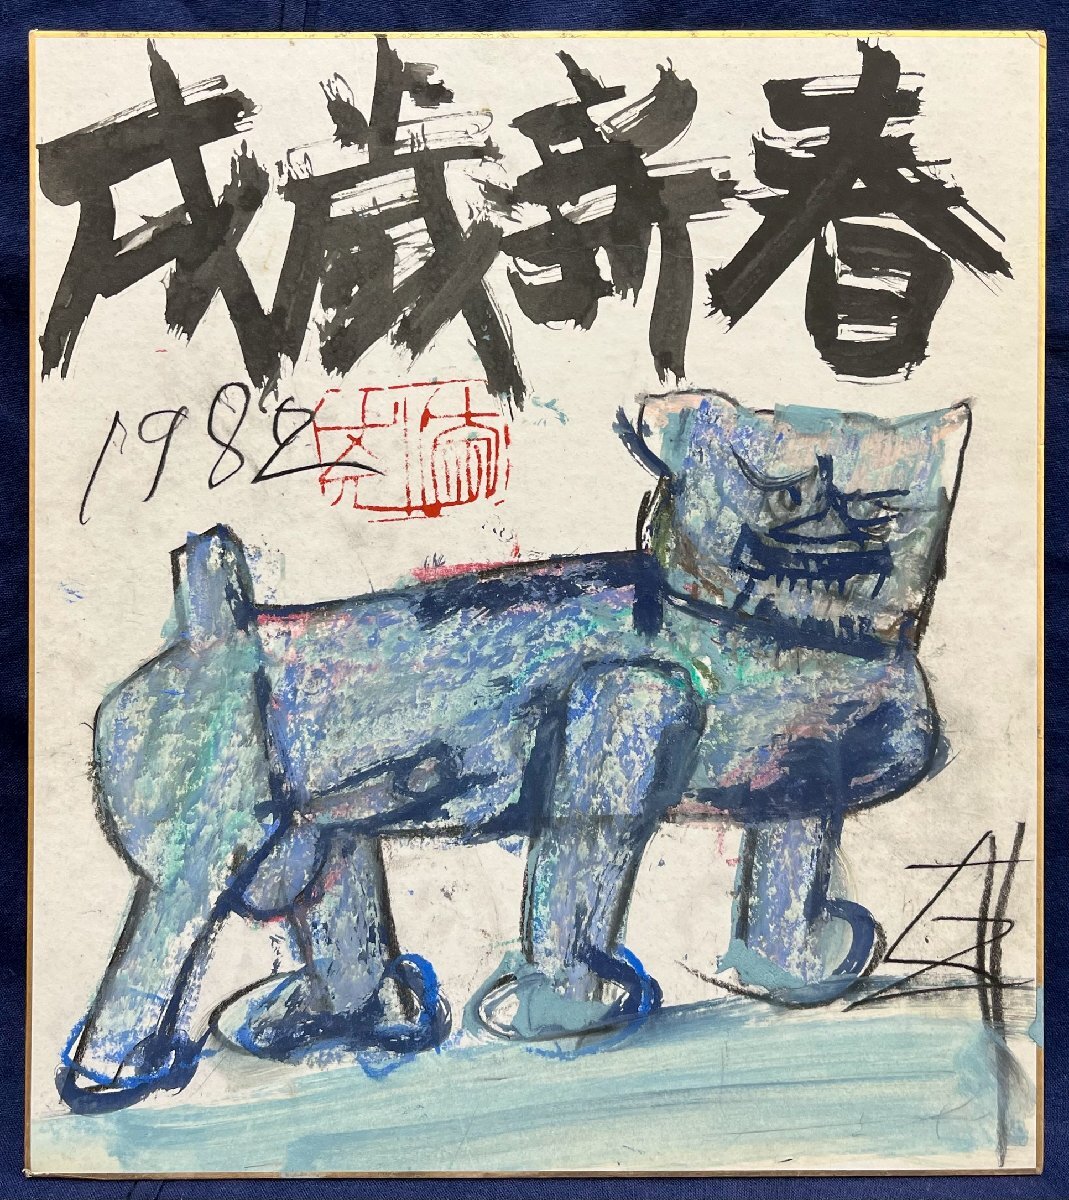 戌歳新春
1982